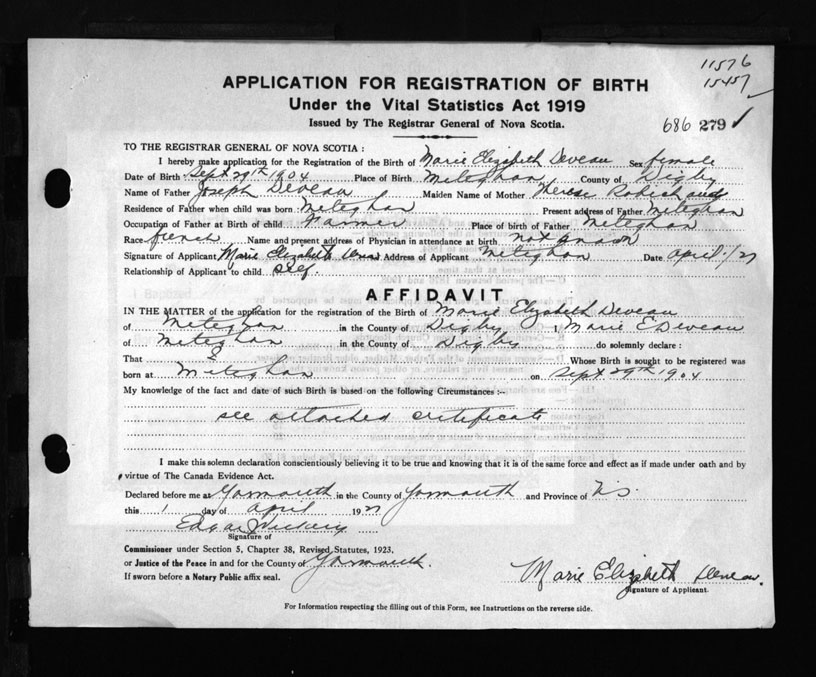 11576
15457
APPLICATION FOR REGISTRATION OF BIRTH
Under the Vital Statistics Act 1919
Issued by The Registrar General of Nova Scotia.
686 279 ✓
TO THE REGISTRAR GENERAL OF NOVA SCOTIA:
I hereby make application for the Registration of the Birth of Marie Elizabeth Deveau Sex female
Date of Birth Sept 29th 1904 Place of Birth Meteghan County of Digby
Name of Father Joseph Deveau Maiden Name of Mother Therese Robichaud
Residence of Father when child was born Meteghan Present address of Father Meteghan
Occupation of Father at Birth of child Farmer Place of birth of Father Meteghan
Race french Name and present address of Physician in attendance at birth not known
Signature of Applicant Marie Elizabeth Deveau Address of Applicant Meteghan Date April 1/27
Relationship of Applicant to child self.
AFFIDAVIT
IN THE MATTER of the application for the registration of the Birth of Marie Elizabeth Deveau
of Meteghan in the County of Digby I, Marie E Deveau
of Meteghan in the County of Digby do solemnly declare:
That I Whose Birth is sought to be registered was
born at Meteghan on Sept 29th 1904
My knowledge of the fact and date of such Birth is based on the following Circumstances:-
see attached certificate
I make this solemn declaration conscientiously believing it to be true and knowing that it is of the same force and effect as if made under oath and by
virtue of The Canada Evidence Act.
Declared before me at Yarmouth in the County of Yarmouth and Province of N.S.
this 1 day of April 1927
Edgar Vickery
Signature of
Commissioner under Section 5, Chapter 38, Revised Statutes, 1923.
or Justice of the Peace in and for the County of Yarmouth.
If sworn before a Notary Public affix seal.
Marie Elizabeth Deveau.
Signature of Applicant.
For Information respecting the filling out of this Form, see Instructions on the reverse side.